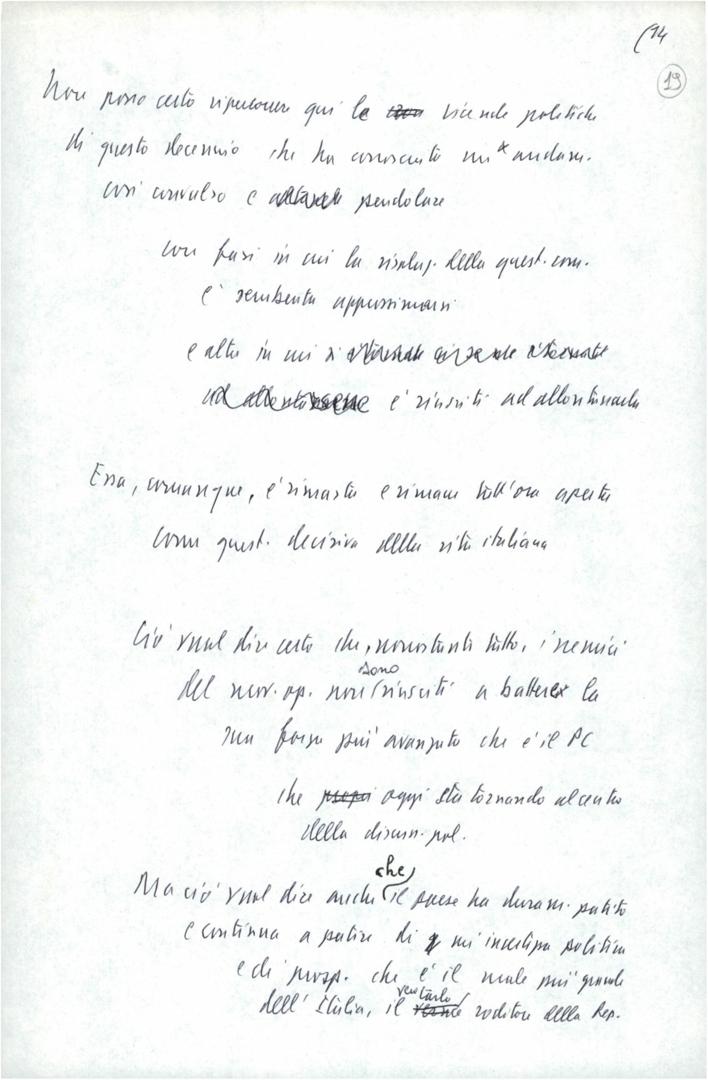 (14
19
Non posso certo ripercorrere qui le vicende politiche
di questo decennio che ha conosciuto un andam.
così convulso e pendolare
con fasi in cui la risoluz. della quest. com.
è sembrata approssimarsi
e altre in cui si
è riusciti ad allontanarla
Essa, comunque, è rimasta e rimane tutt'ora aperta
come quest. decisiva della vita italiana
Ciò vuol dire certo che, nonostante tutto, i nemici
del mov. op. non sono riusciti a battere la
sua forza più avanzata che è il PC
che oggi sta tornando al centro
della discuss. pol.
Ma ciò vuol dire anche che il paese ha duram. patito
e continua a patire di un'incertezza politica
e di prosp. che è il male più grande
dell'Italia, il vero tarlo roditore della Rep.